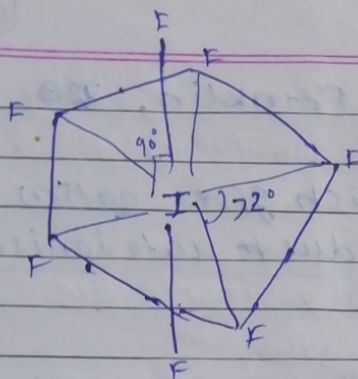 F
F
F
90°
F
I
72°
F
F
F